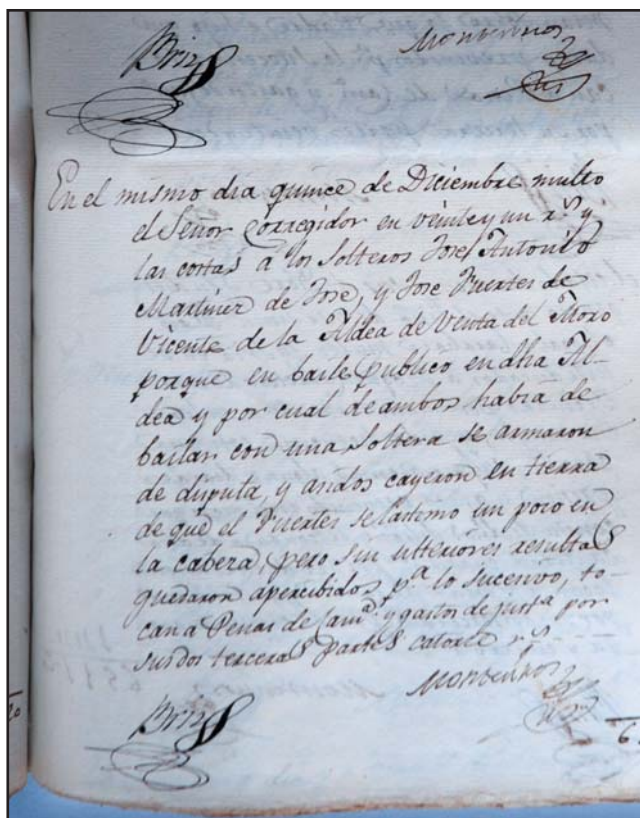 Briz Montesinos
En el mismo dia quince de Diciembre multo
el Señor Corregidor en veinte y un r.s y
las costas a los Solteros Jose Antonio
Martinez de Jose, y Jose Fuertes de
Vicente de la Aldea de Venta del Moro
porque en baile publico en dha Al-
dea y por cual de ambos habia de
bailar con una Soltera se armaron
de disputa, y andos cayeron en tierra
de que el Fuertes se lastimo un poco en
la cabeza, pero sin ulteriores resultas
quedaron apercibidos p.a lo sucesivo, to
can a Penas de Cam.a y gastos de just.a por
sus dos terceras partes catorce r.s
Montesinos
Briz